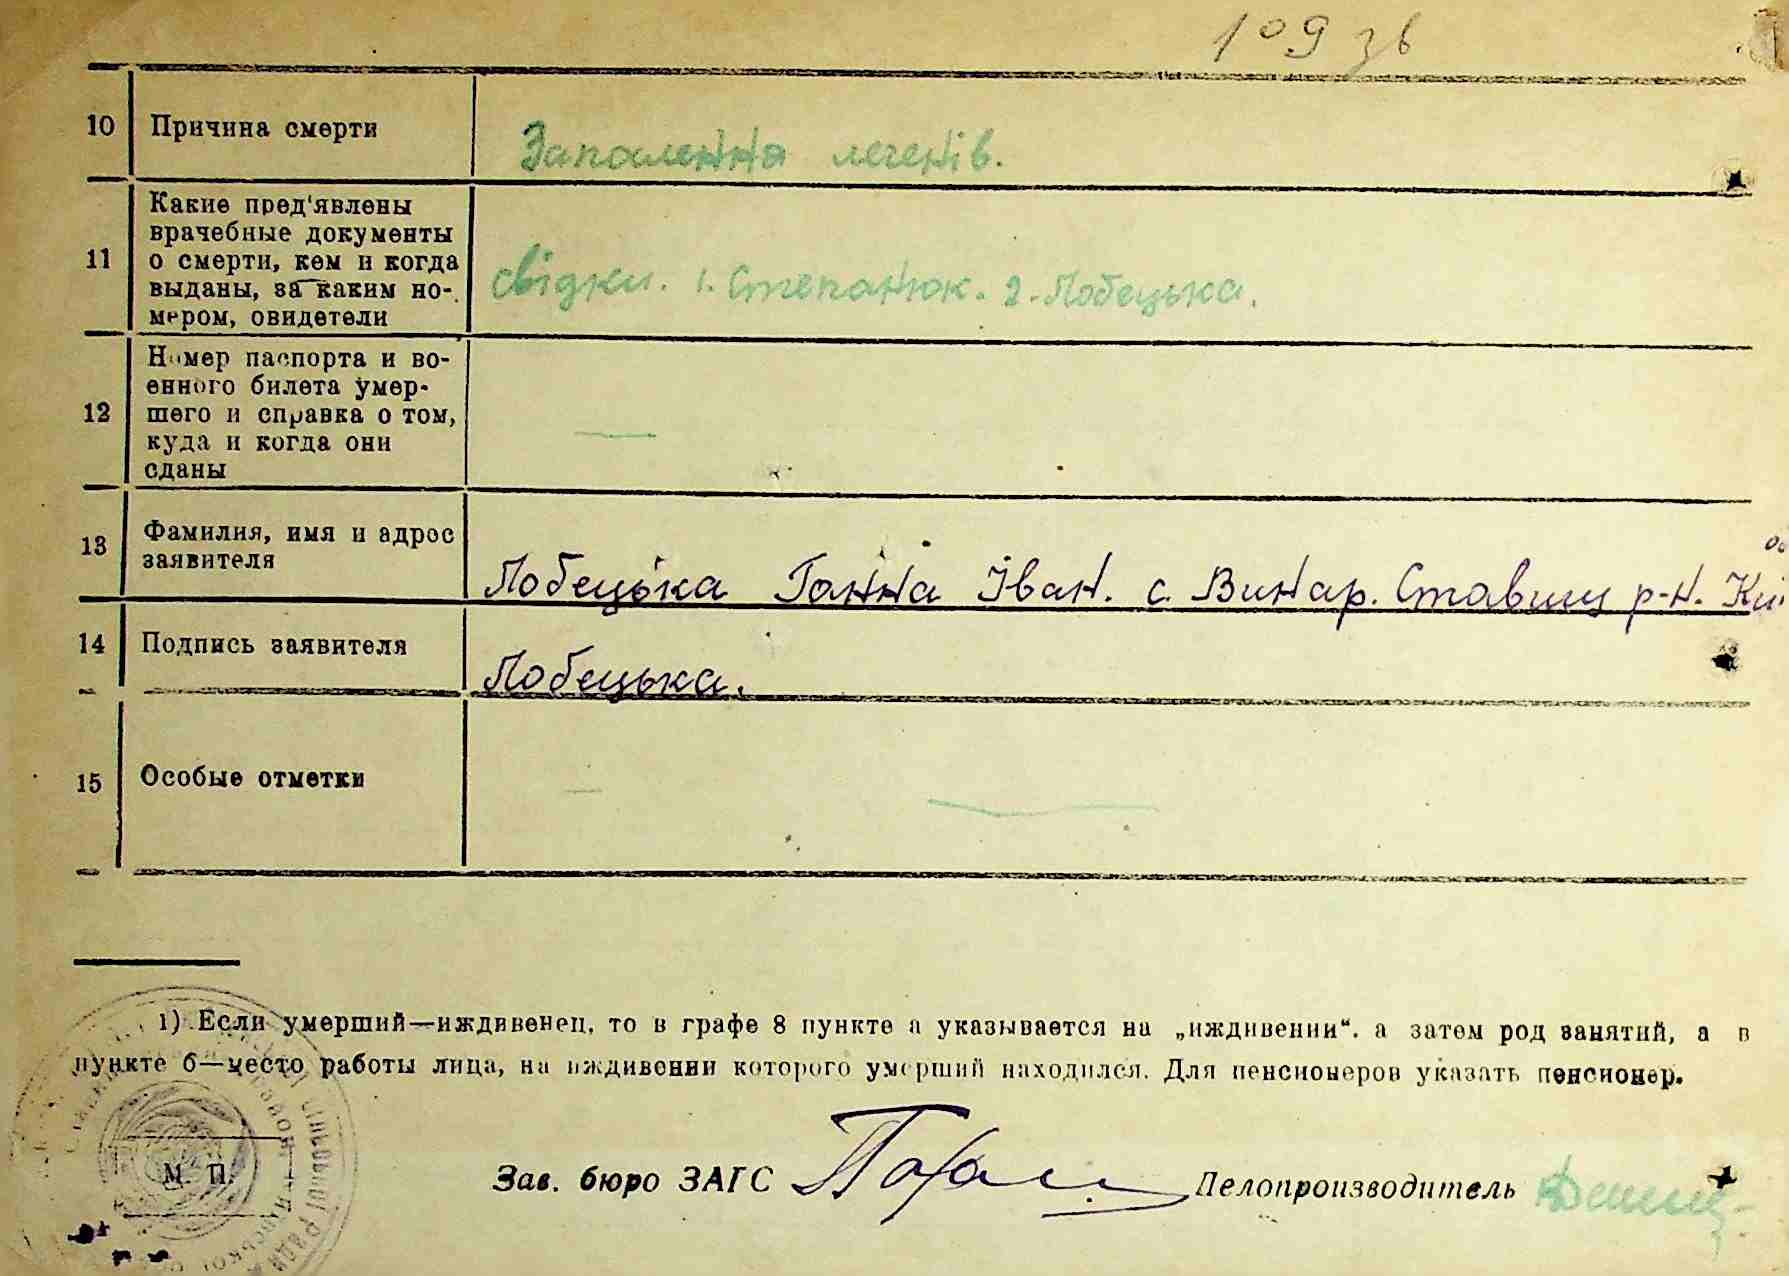 109 зв
10 Причина смерти
Запалення легенів.
11 Какие пред'явлены
врачебные документы
о смерти, кем и когда
выданы, за каким но-
мером, свидетели
свідки. 1. Степанюк. 2. Лобецька.
12 Номер паспорта и во-
енного билета умер-
шего и справка о том,
куда и когда они
сданы
—
13 Фамилия, имя и адрес
заявителя
Лобецька Ганна Іван. с. Винар. Ставищ р-н. Ки
14 Подпись заявителя
Лобецька.
15 Особые отметки
—
1) Если умерший—иждивенец, то в графе 8 пункте а указывается на „иждивении“, а затем род занятий, а в
пункте б—место работы лица, на иждивении которого умерший находился. Для пенсионеров указать пенсионер.
М. П.
Зав. бюро ЗАГС
Делопроизводитель